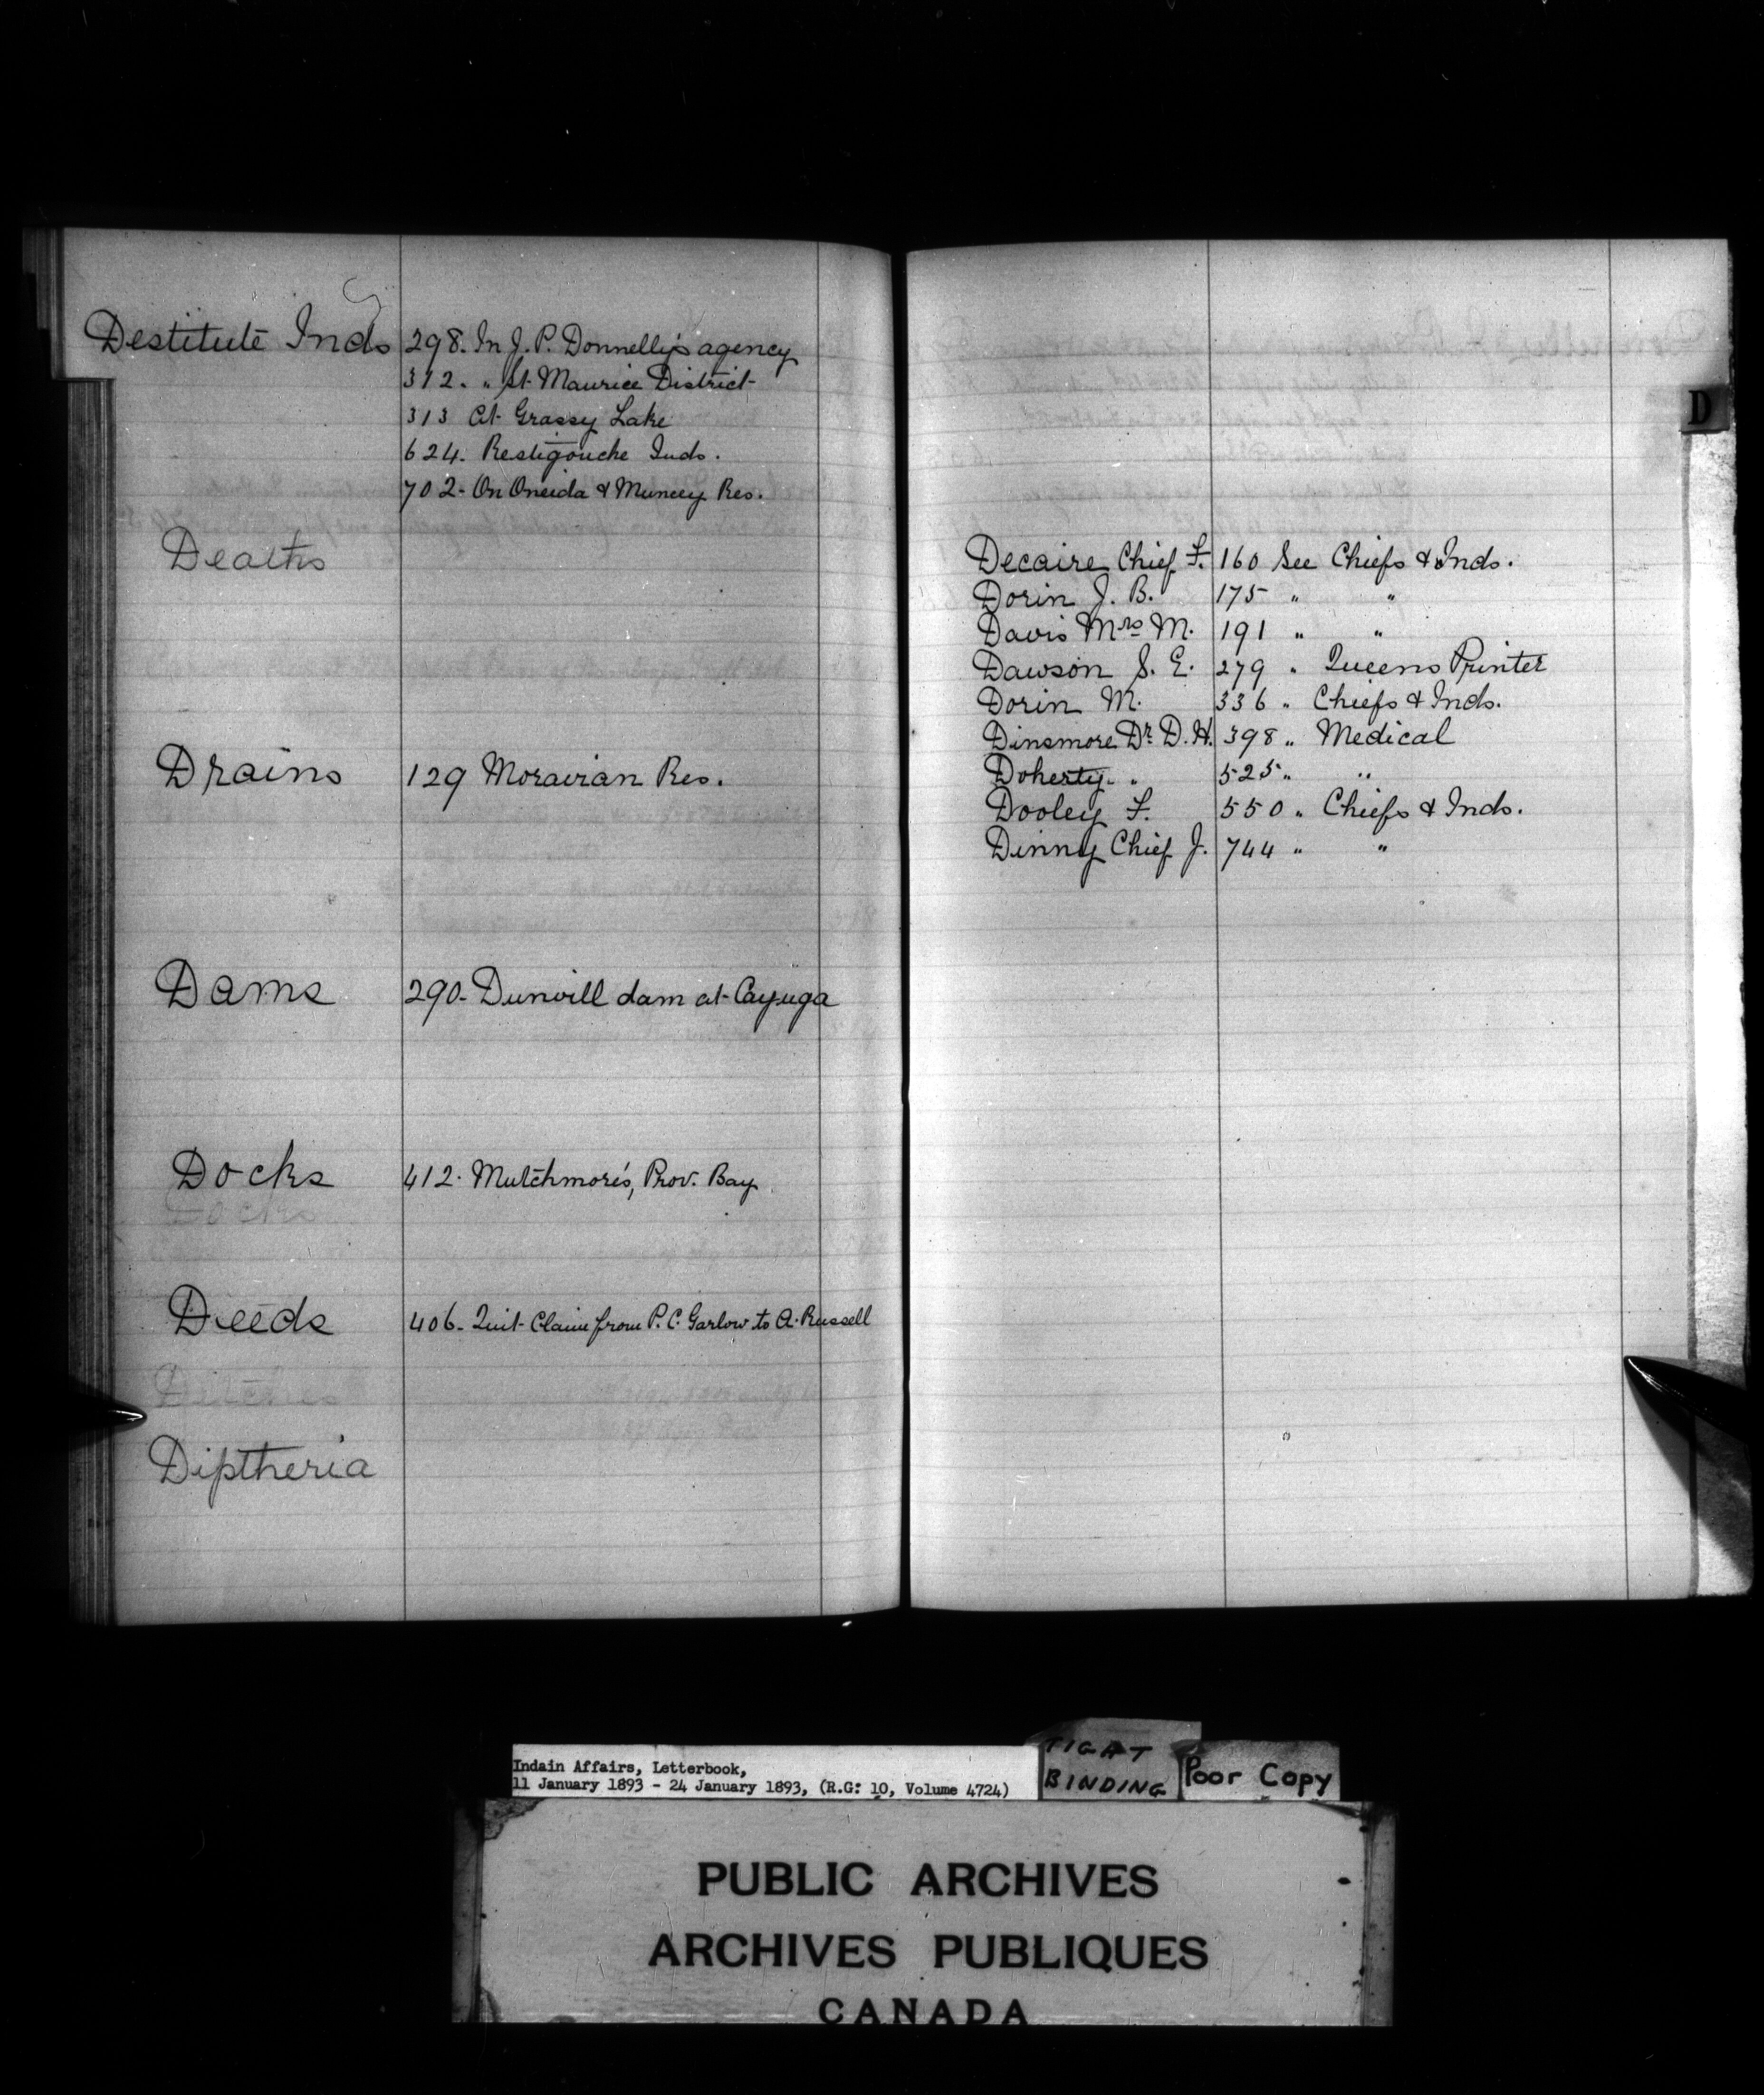 Destitute Inds 298. In J. P. Donnelly's agency
312. " St. Maurice District
313 At Grassy Lake
624. Restigouche Inds.
702. On Oneida & Muncey Res.
Deaths
Drains 129 Moravian Res.
Dams 290. Dunvill dam at Cayuga
Docks 412. Mutchmore's, Prov. Bay
Docks
Deeds 406. Quit Claim from P. C. Garlow to A. Russell
Ditches
Diptheria
D
Decaire Chief F. 160 See Chiefs & Inds.
Dorin J. B. 175 " "
Davis Mrs M. 191 " "
Dawson S. E. 279 " Queens Printer
Dorin M. 336 " Chiefs & Inds.
Dinsmore Dr D. H. 398 " Medical
Doherty " 525 " "
Dooley F. 550 " Chiefs & Inds.
Dinny Chief J. 744 " "
Indain Affairs, Letterbook,
11 January 1893 - 24 January 1893, (R.G: 10, Volume 4724)
TIGHT
BINDING
Poor Copy
PUBLIC ARCHIVES
ARCHIVES PUBLIQUES
CANADA